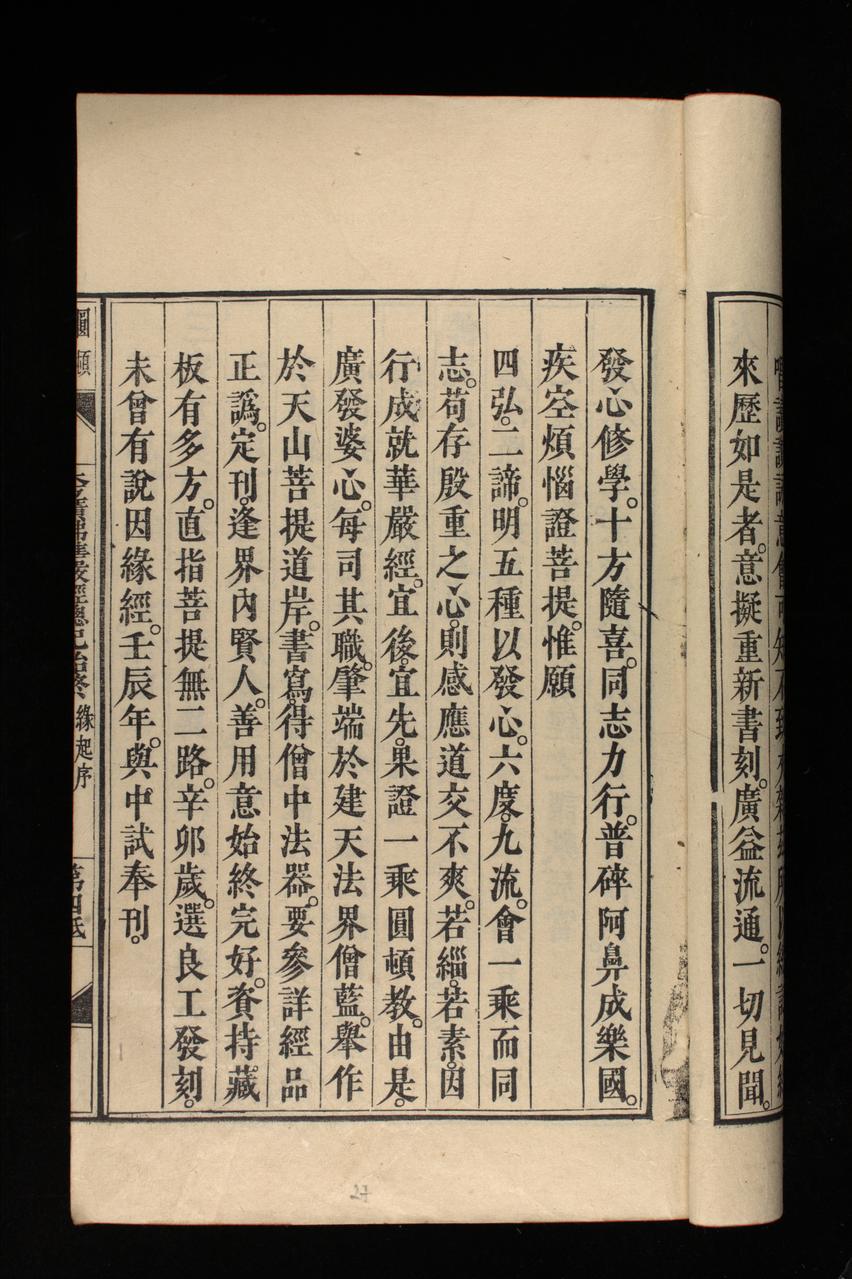 來歷如是者。意擬重新書刻。廣益流通。一切見聞。
發心修學。十方隨喜。同志力行。普碎阿鼻成樂國。
疾空煩惱證菩提。惟願
四弘。二諦。明五種以發心。六度。九流。會一乘而同
志。苟存殷重之心。則感應道交不爽。若緇。若素。因
行成就華嚴經。宜後。宜先。果證一乘圓頓教。由是。
廣發婆心。每司其職。肇端於建天法界僧藍。舉作
於天山菩提道岸。書寫。得僧中法器。要參詳經品
正譌。定刊。逢界內賢人。善用意始終完好。賫持藏
板有多方。直指菩提無二路。辛卯歲。選良工發刻。
未曾有說因緣經。壬辰年。與中試奉刊。
緣起序